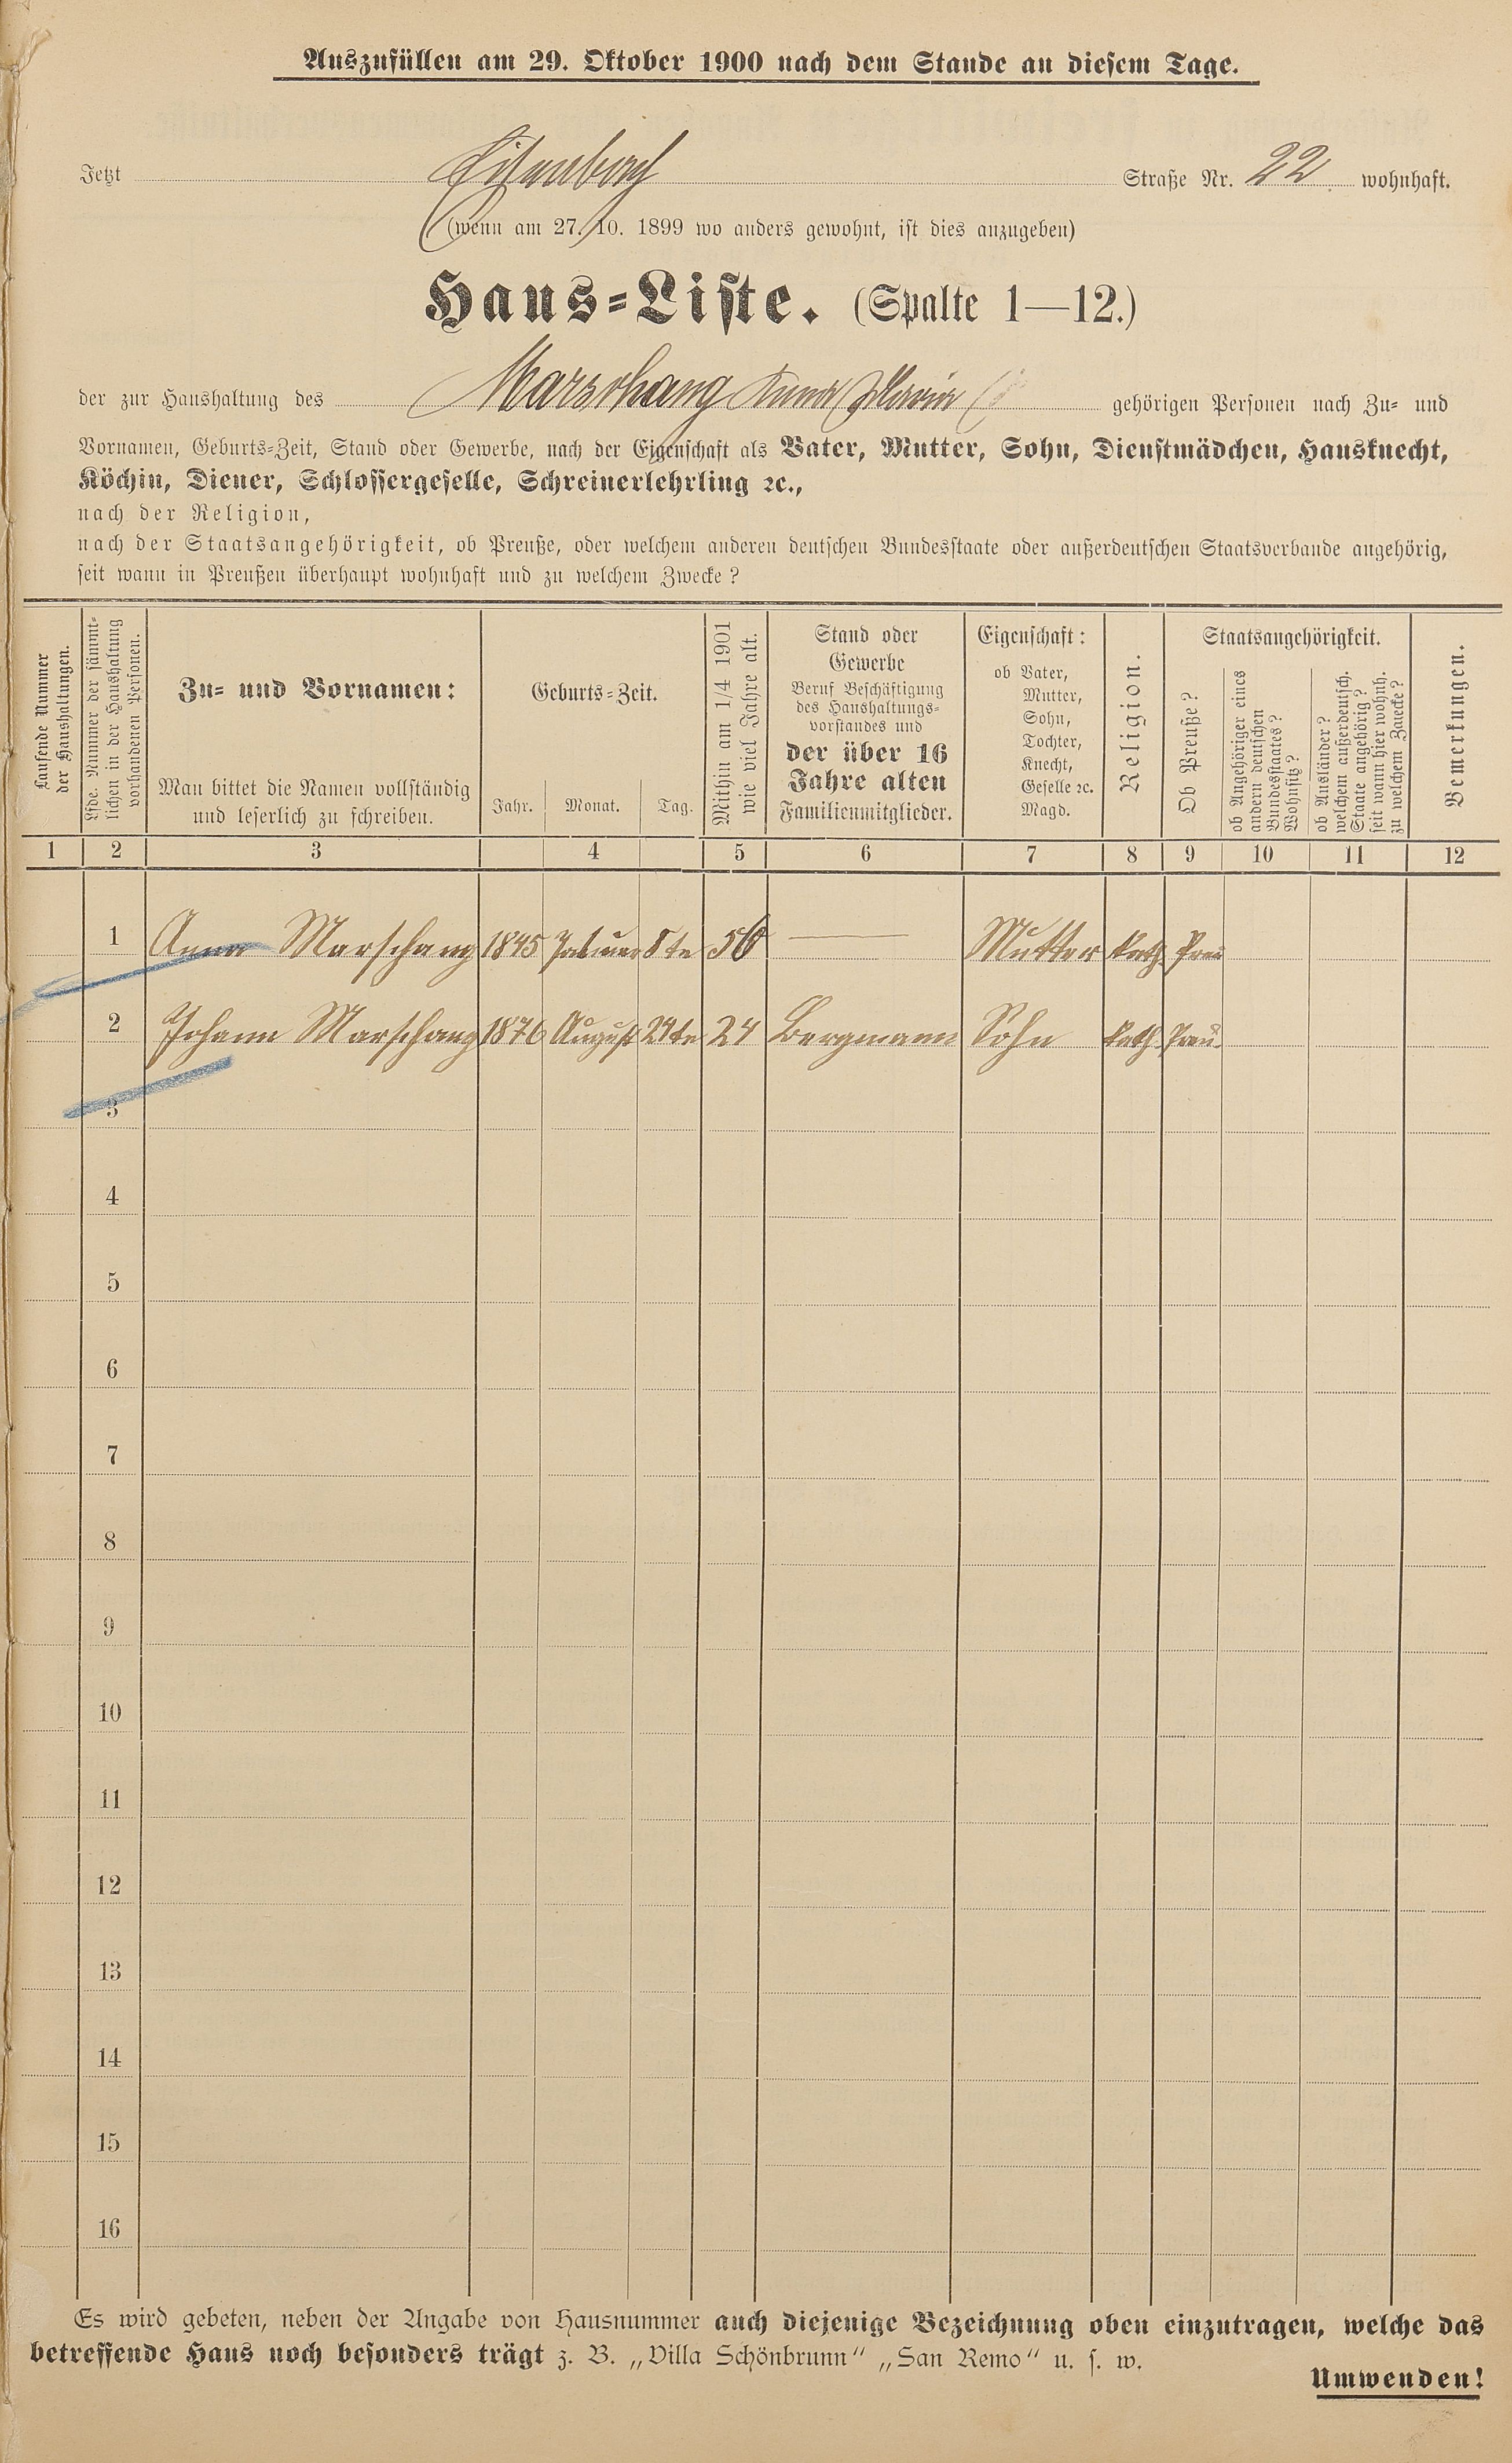 Auszufüllen am 29. Oktober 1900 nach dem Stande an diesem Tage.
Jetzt Eisenbach Straße Nr. 22 wohnhaft.
(wenn am 27. 10. 1899 wo anders gewohnt, ist dies anzugeben)
Haus-Liste. (Spalte 1—12.)
der zur Haushaltung des Marschang Anna Maria gehörigen Personen nach Zu- und
Vornamen, Geburts-Zeit, Stand oder Gewerbe, nach der Eigenschaft als Vater, Mutter, Sohn, Dienstmädchen, Hausknecht,
Köchin, Diener, Schlossergeselle, Schreinerlehrling ꝛc.,
nach der Religion,
nach der Staatsangehörigkeit, ob Preuße, oder welchem anderen deutschen Bundesstaate oder außerdeutschen Staatsverbande angehörig,
seit wann in Preußen überhaupt wohnhaft und zu welchem Zwecke?
Laufende Nummer
der Haushaltungen.
Lfde. Nummer der sämmt-
lichen in der Haushaltung
vorhandenen Personen.
Zu- und Vornamen:
Man bittet die Namen vollständig
und leserlich zu schreiben.
Geburts-Zeit.
Jahr. Monat. Tag.
Mithin am 1/4 1901
wie viel Jahre alt.
Stand oder
Gewerbe
Beruf Beschäftigung
des Haushaltungs-
vorstandes und
der über 16
Jahre alten
Familienmitglieder.
Eigenschaft:
ob Vater,
Mutter,
Sohn,
Tochter,
Knecht,
Geselle ꝛc.
Magd.
Religion.
Staatsangehörigkeit.
Ob Preuße?
ob Angehöriger eines
andern deutschen
Bundesstaates?
Wohnsitz?
ob Ausländer?
welchem außerdeutsch.
Staate angehörig?
seit wann hier wohnh.
zu welchem Zwecke?
Bemerkungen.
1 2 3 4 5 6 7 8 9 10 11 12
1 Anna Marschang 1845 Januar 8te 56 — Mutter kath. Preu
2 Johann Marschang 1876 August 24te 24 Bergmann Sohn kath. Preu.
3
4
5
6
7
8
9
10
11
12
13
14
15
16
Es wird gebeten, neben der Angabe von Hausnummer auch diejenige Bezeichnung oben einzutragen, welche das
betreffende Haus noch besonders trägt z. B. „Villa Schönbrunn“ „San Remo“ u. s. w.
Umwenden!